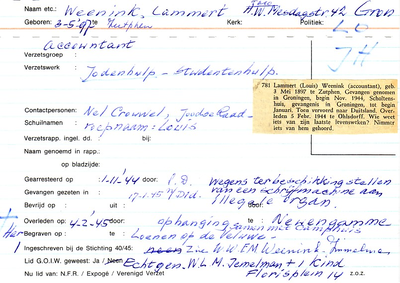 Naam etc.: Weenink, Lammert H.W. Mesdagstr. 42 Gron
Geboren: 3-5-'07 te Zutphen Kerk: Politiek:
accountant
Verzetsgroep:
Verzetswerk : Jodenhulp - studentenhulp.
JH
781 Lammert (Louis) Weenink (accountant), geb.
3 Mei 1897 te Zutphen. Gevangen genomen
in Groningen, begin Nov. 1944, Scholtens-
huis, gevangenis in Groningen, tot begin
Januari. Toen vervoerd naar Duitsland. Over-
leden 5 Febr. 1944 te Ohlsdorff. Wie weet
iets van zijn laatste levensweken? Nimmer
iets van hem gehoord.
Contactpersonen: Nel Crouwel, Joodse Raad -
Schuilnaam: roepnaam: Louis
Verzetsrapp. ingel. dd. : bij:
Naam genoemd in rapp.
op bladzijde:
Gearresteerd op : 1-11-'44 door : S.D. wegens ter beschikking stellen
Gevangen gezeten in : 17-1-45 van een schrijfmachine aan
illegale organ.
Overleden op : 4-2-'45 door : ophanging samen met Camphuis te Neuengamme
Begraven op : Loenen op de Veluwe -
Ingeschreven bij de Stichting 40/45: neen Zie W.W.F.M. Weenink-
Lid G.O.I.W. geweest: Ja / Neen Echtgen. W.L.M. Temelman + 1 kind
Nu lid van N.F.R. / Expogé / Verenigd Verzet Florisplein 14 z.o.z.